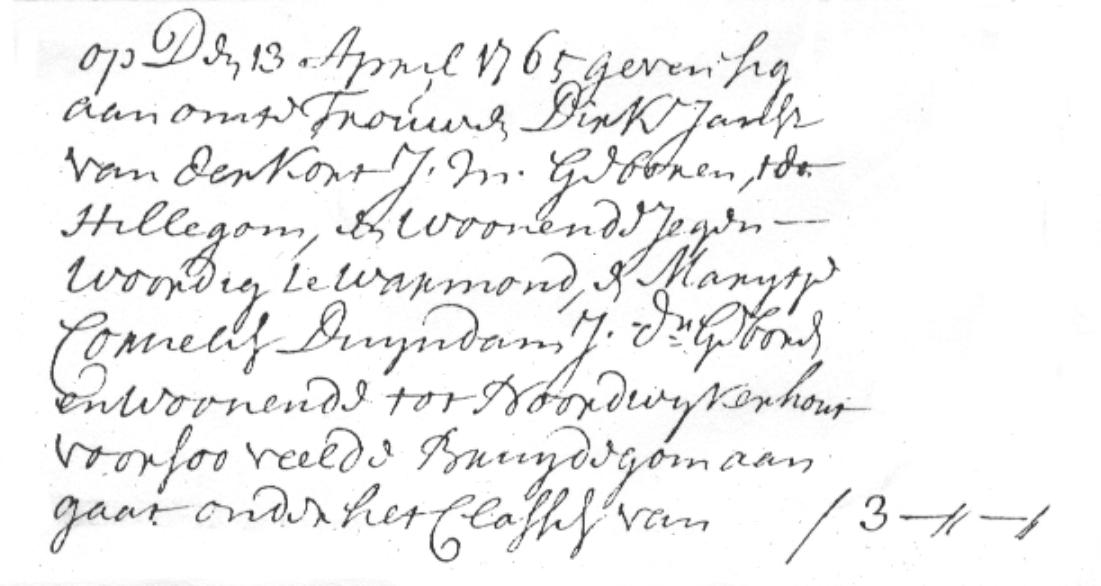 op Den 13 April 1765 geven sig
aan omte Trouwen Dirk Jansz
van der Kort J. M. Gebooren, tot
Hillegom, en Woonende Jegen—
woordig te Warmond, en Marijtje
Cornelisz Duijndam J. dr Geboren
en Woonende tot Noordwijkerhout
voorsoo veel de Bruijdegom aan
gaat onder het Classis van / 3 —"—"